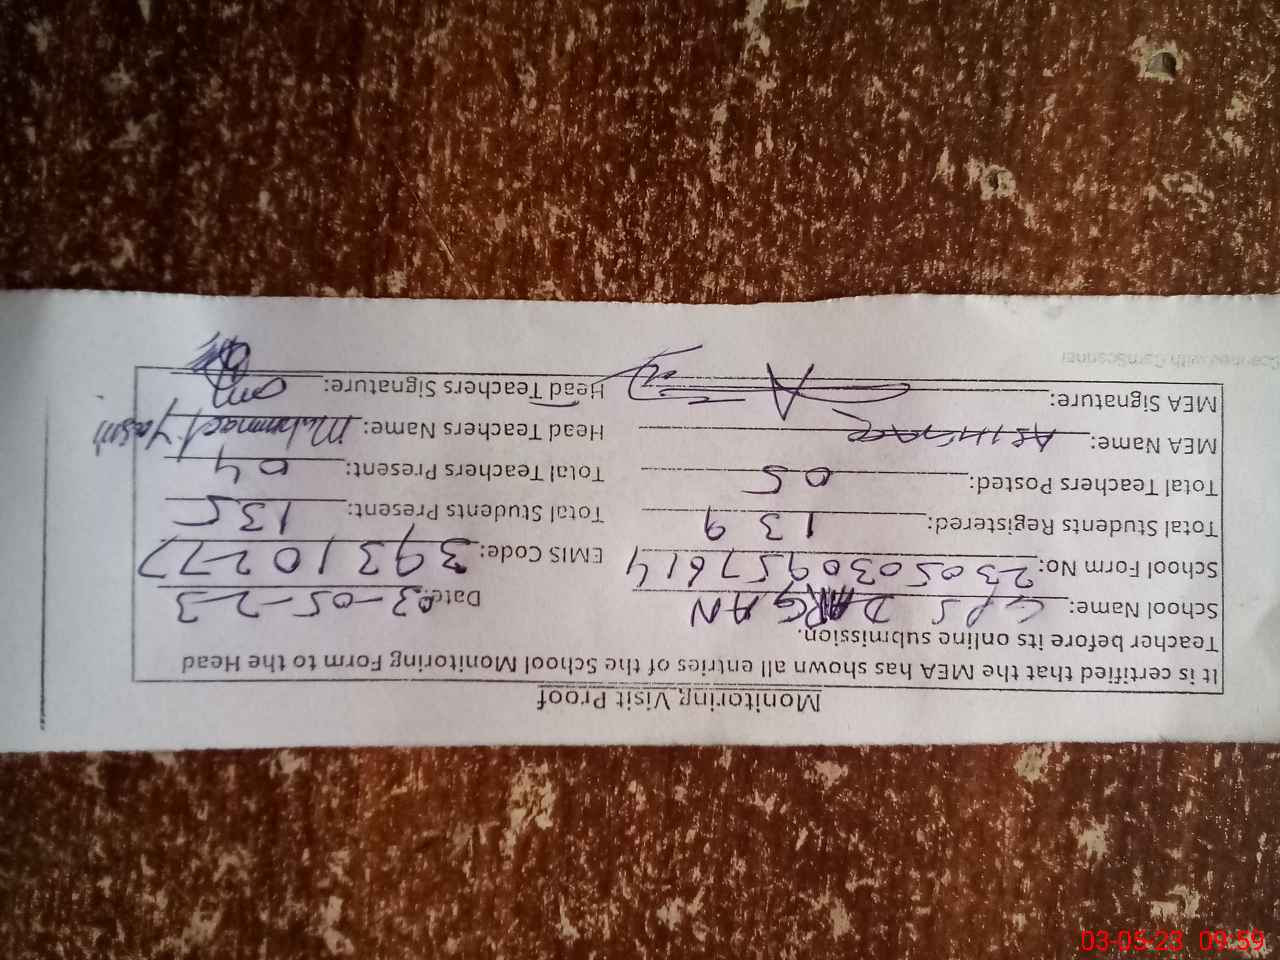 Monitoring Visit Proof
It is certified that the MEA has shown all entries of the School Monitoring Form to the Head
Teacher before its online submission.
School Name: GPS DARGAN Date: 03-05-23
School Form No: 2305030957614 EMIS Code: 39310277
Total Students Registered: 139 Total Students Present: 135
Total Teachers Posted: 05 Total Teachers Present: 04
MEA Name: Head Teachers Name: Muhammad Yasin
MEA Signature: Head Teachers Signature:
Scanned with CamScanner
03-05-23 09:59